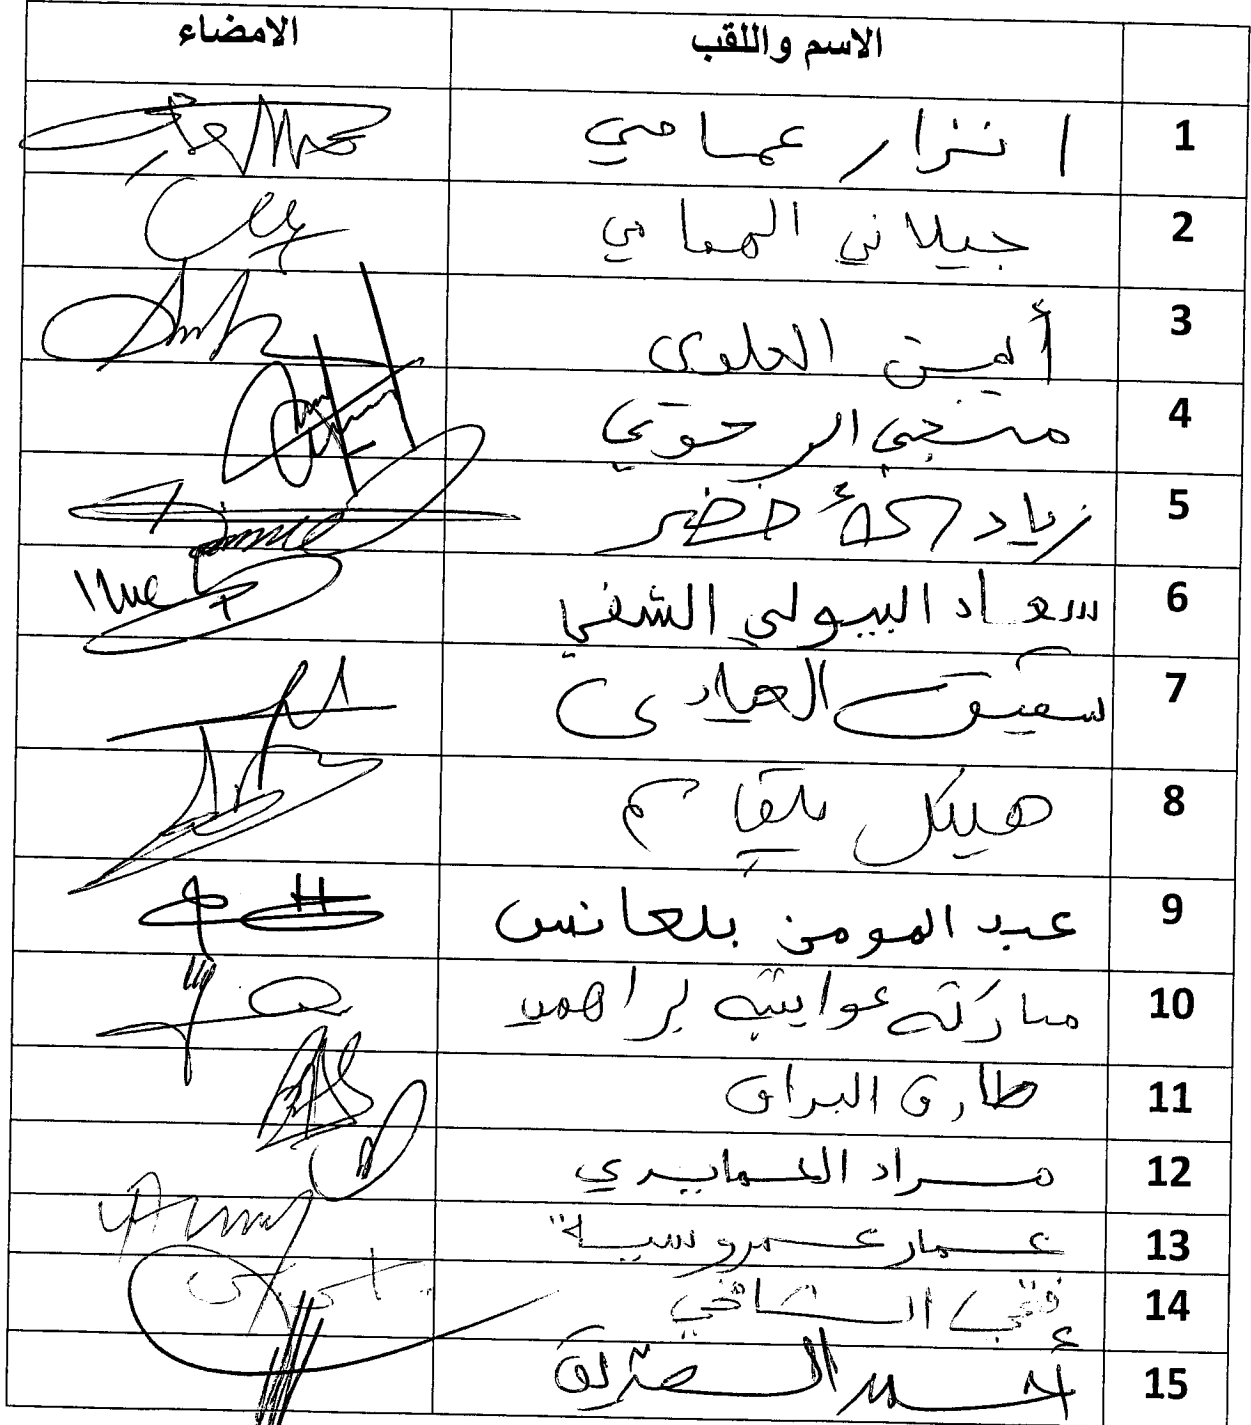 الاسم واللقب الامضاء
1 نزار عمامي
2 جيلاني الهمامي
3 أيمن العلوي
4 منجي الرحوي
5 زياد لخضر
6 سعاد البيولي الشفي
7 شفيق العيادي
8 هيكل بلقاسم
9 عبد المومن بلعانس
10 مباركة عواينية براهمي
11 طارق البراق
12 مراد الحمايدي
13 عمار عمروسية
14 فتحي الشامخي
15 أحمد الصديق